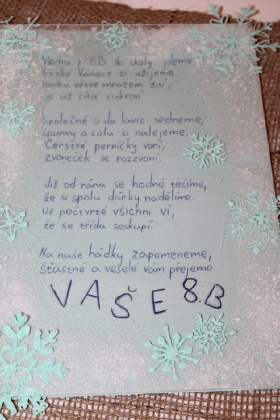 Všichni z 8.B do školy jdeme,
Vánoce si užijeme.
venku mrazem zní,
je už cítit cukroví

Společně si do lavic sedneme,
špunty a colu si nalejeme.
Čerstvé perníčky voní,
zvoneček se rozzvoní.

Již od rána se hodně těšíme,
že si spolu dárky nadělíme.
Už počtvrté všichni ví,
že se třída seskupí.

Na naše hádky zapomeneme,
Šťastné a veselé vám přejeme
VAŠE 8.B